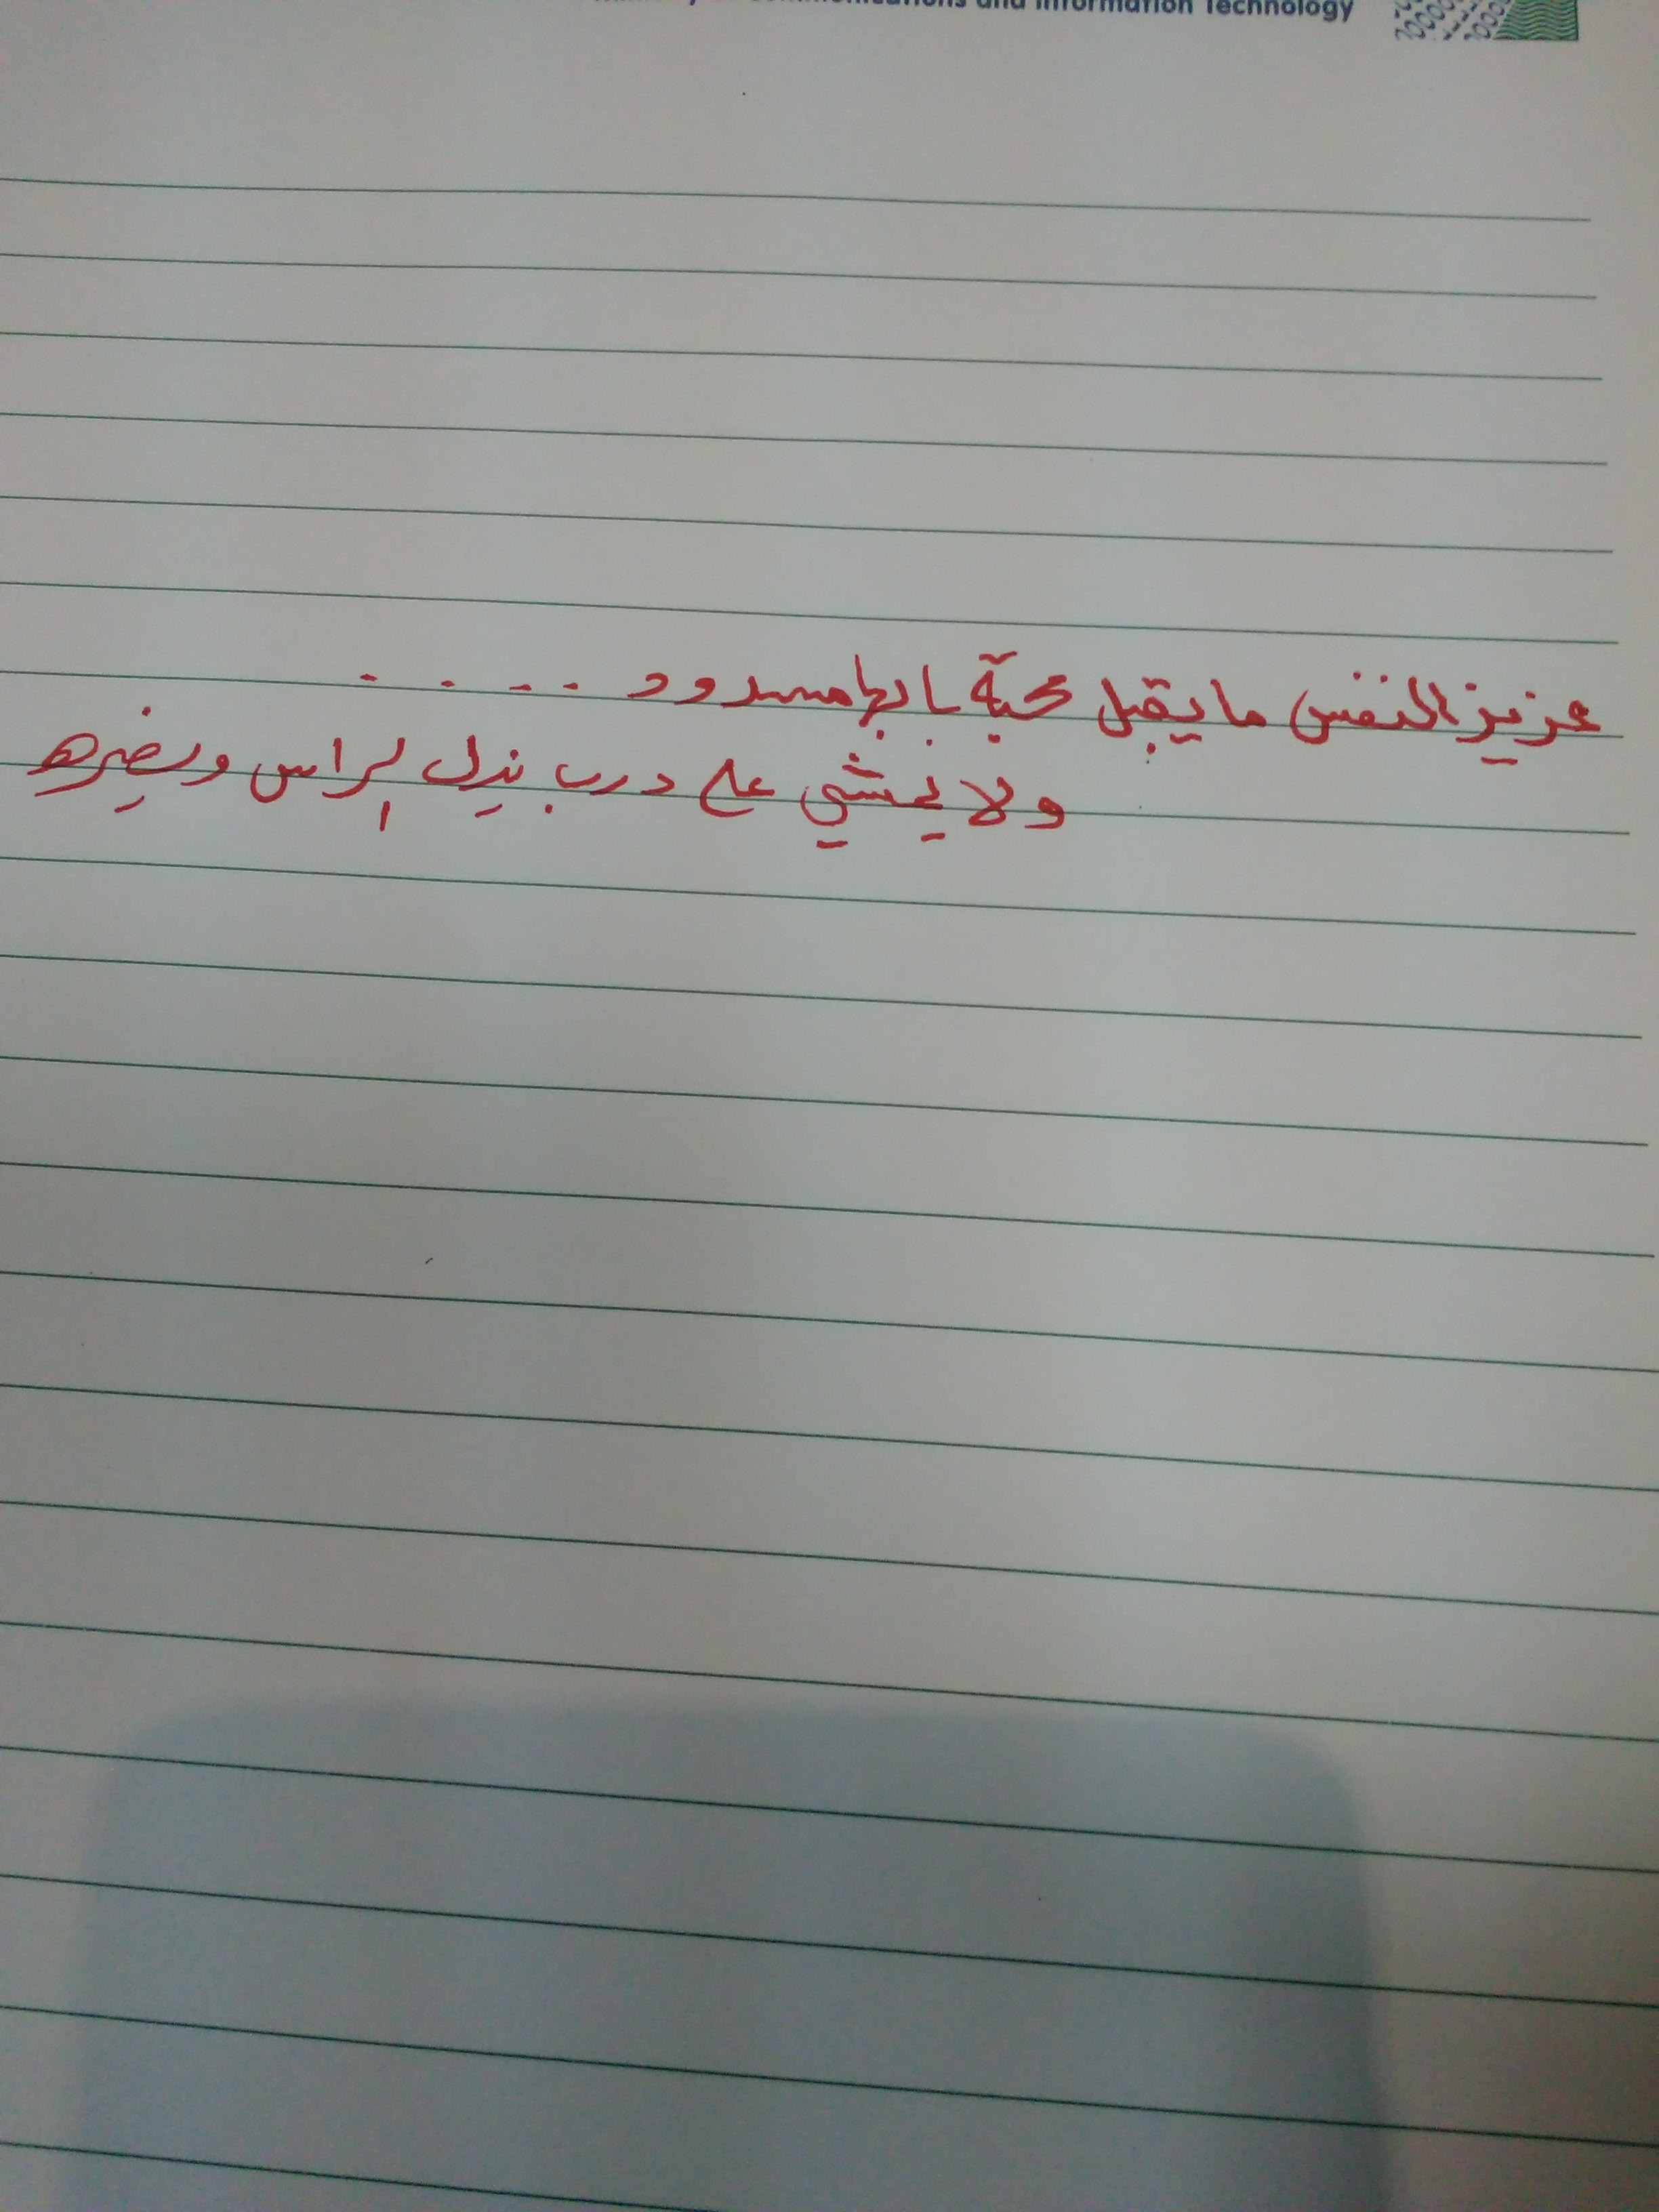 Communications and Information Technology
عزيز النفس ما يقبل محبة بابها مسدود ....
ولا يمشي على درب ينزل الراس ويضيره